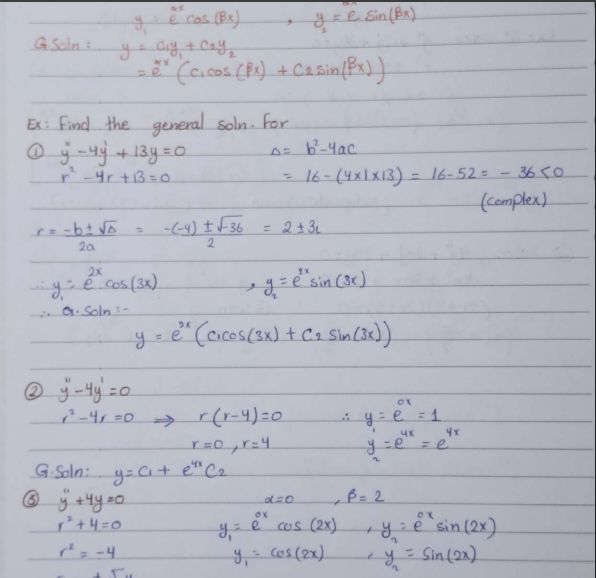 y₁ = e^αx cos(βx) , y₂ = e^αx sin(βx)
G.Soln: y = c₁y₁ + c₂y₂
= e^αx (c₁cos(βx) + c₂sin(βx))
Ex: Find the general soln. for
① y'' - 4y' + 13y = 0 Δ = b² - 4ac
r² - 4r + 13 = 0 = 16 - (4x1x13) = 16 - 52 = - 36 < 0
(complex)
r = (-b ± √Δ)/2a = (-(-4) ± √-36)/2 = 2 ± 3i
∴ y₁ = e^2x cos(3x) , y₂ = e^2x sin(3x)
∴ G.Soln :-
y = e^2x (c₁cos(3x) + c₂ sin(3x))
② y'' - 4y' = 0
r² - 4r = 0 ⇒ r(r-4) = 0 ∴ y₁ = e^0x = 1
r = 0 , r = 4 y₂ = e^4x = e^4x
G.Soln: y = c₁ + e^4x c₂
③ y'' + 4y = 0 α = 0 , β = 2
r² + 4 = 0 y₁ = e^0x cos (2x) , y₂ = e^0x sin(2x)
r² = -4 y₁ = cos(2x) , y₂ = Sin(2x)